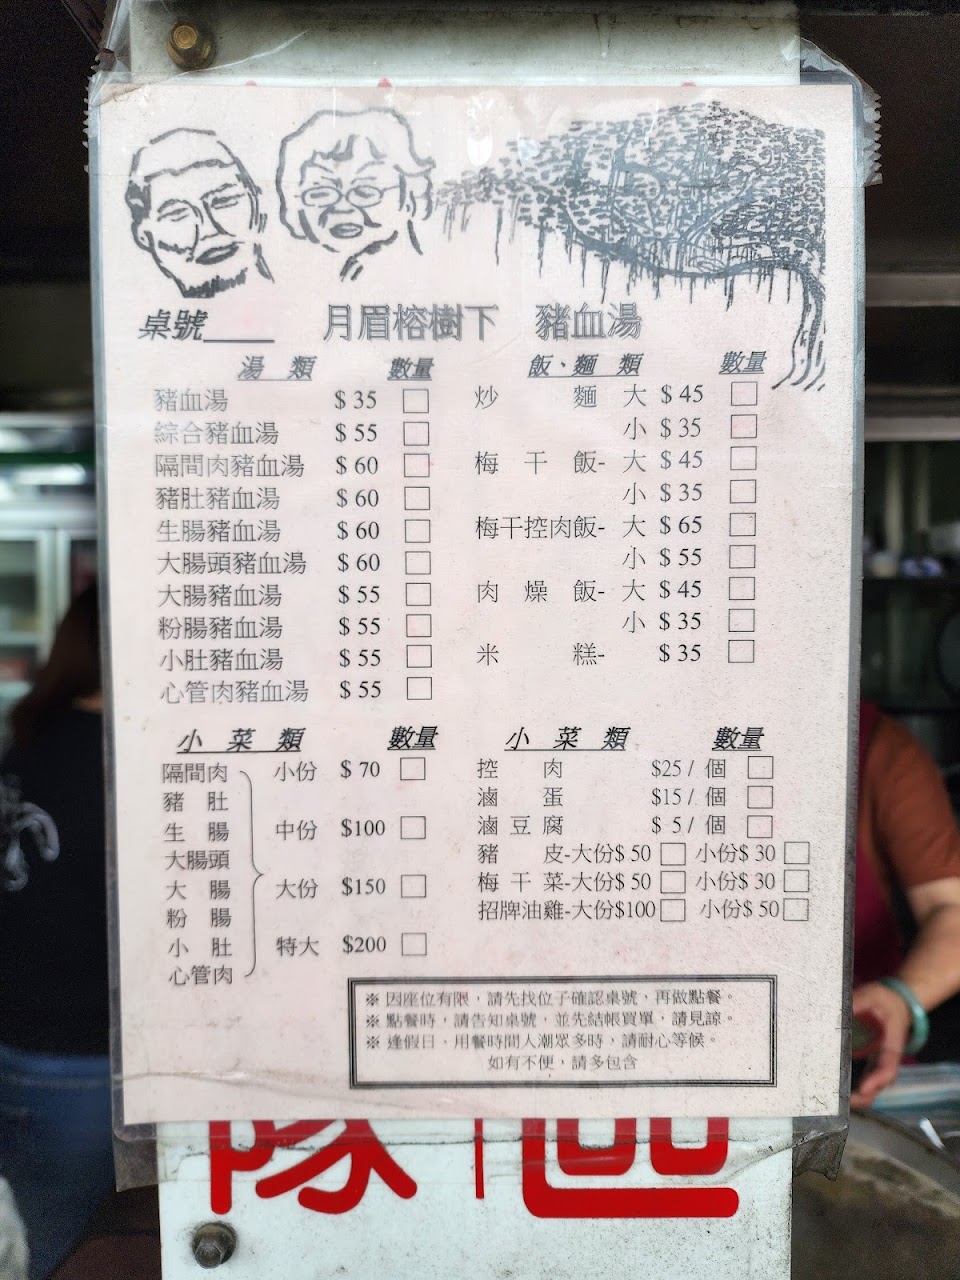 桌號____ 月眉榕樹下 豬血湯
湯類 數量
豬血湯 $35 □
綜合豬血湯 $55 □
隔間肉豬血湯 $60 □
豬肚豬血湯 $60 □
生腸豬血湯 $60 □
大腸頭豬血湯 $60 □
大腸豬血湯 $55 □
粉腸豬血湯 $55 □
小肚豬血湯 $55 □
心管肉豬血湯 $55 □
飯、麵類 數量
炒麵 大 $45 □
小 $35 □
梅干飯- 大 $45 □
小 $35 □
梅干控肉飯- 大 $65 □
小 $55 □
肉燥飯- 大 $45 □
小 $35 □
米糕- $35 □
小菜類 數量
隔間肉 小份 $70 □
豬肚
生腸 中份 $100 □
大腸頭
大腸 大份 $150 □
粉腸
小肚 特大 $200 □
心管肉
小菜類 數量
控肉 $25/個 □
滷蛋 $15/個 □
滷豆腐 $5/個 □
豬皮-大份$50 □ 小份$30 □
梅干菜-大份$50 □ 小份$30 □
招牌油雞-大份$100 □ 小份$50 □
※因座位有限，請先找位子確認桌號，再做點餐。
※點餐時，請告知桌號，並先結帳買單，請見諒。
※逢假日、用餐時間人潮眾多時，請耐心等候。
如有不便，請多包含